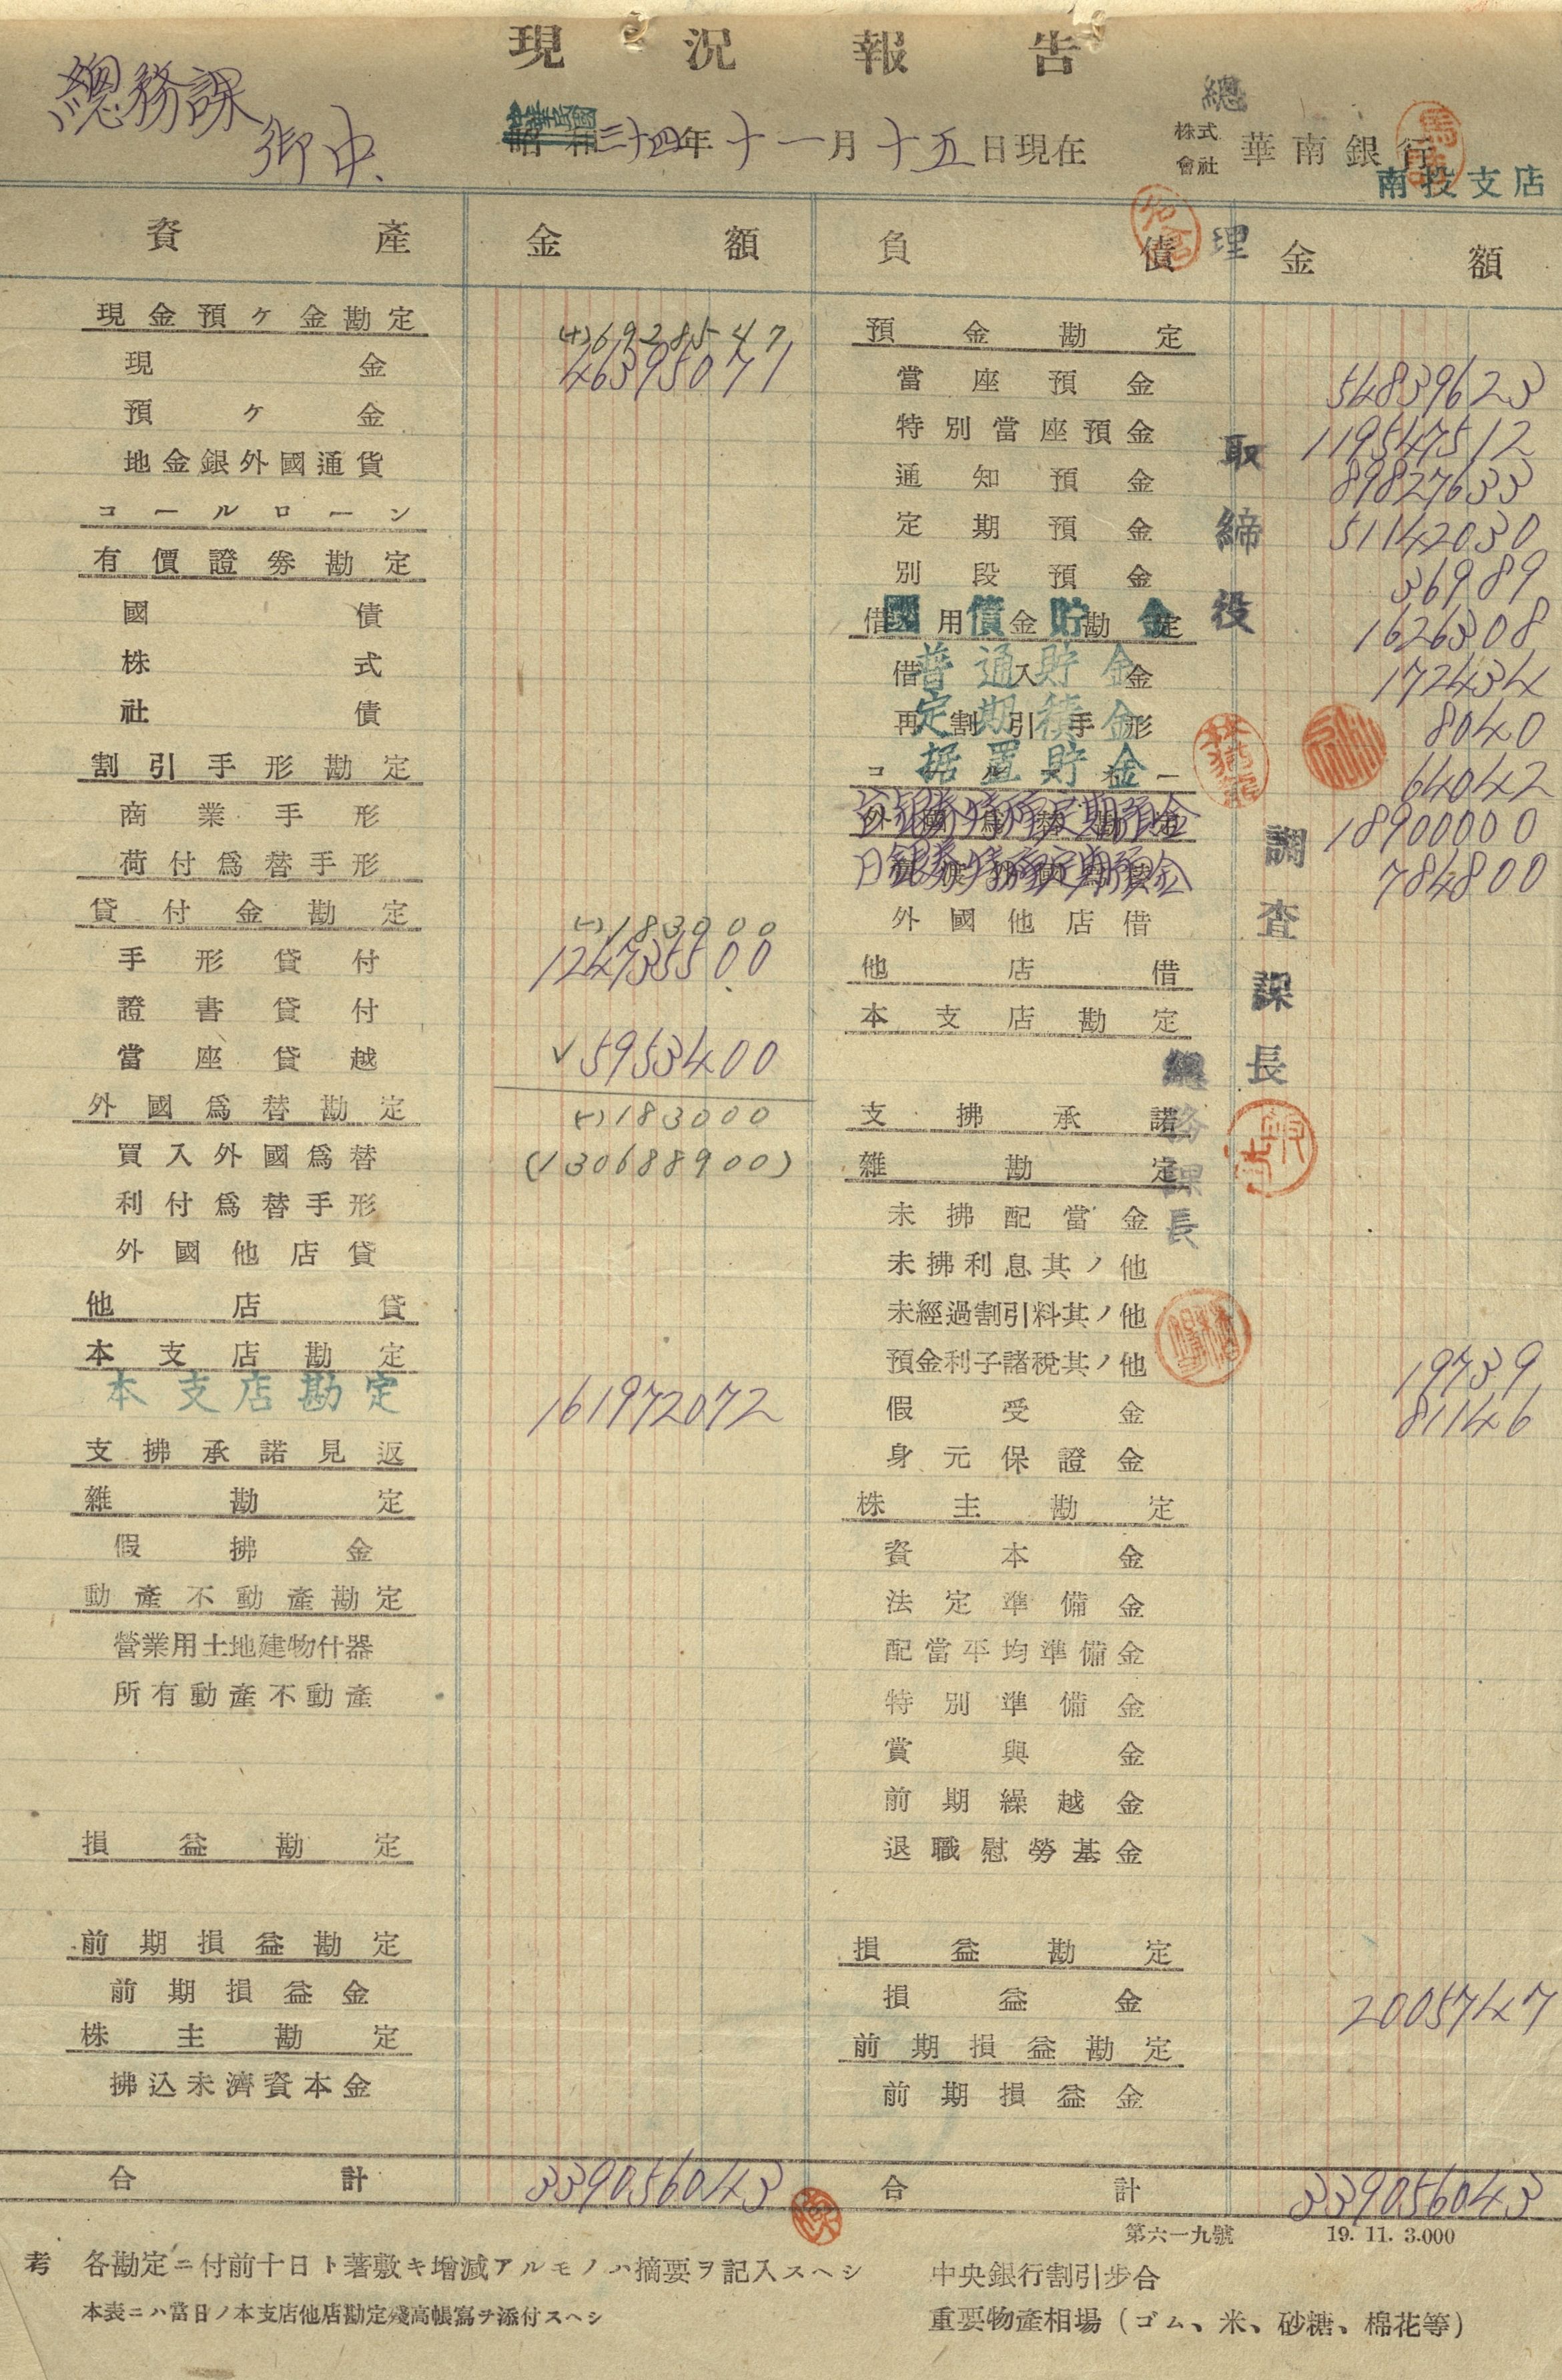 現況報告
總務課
御中
中華民國三十四年十一月十五日現在
總
株式會社 華南銀行
南投支店
資產 金額 負債 金額
理
現金預ケ金勘定 (+)6928547
現金 46395071
預ケ金
地金銀外國通貨
コールローン
有價證劵勘定
國債
株式
社債
割引手形勘定
商業手形
荷付爲替手形
貸付金勘定 (-)183000
手形貸付 124735500
證書貸付
當座貸越 √5953400
外國爲替勘定 (-)183000
買入外國爲替 (130688900)
利付爲替手形
外國他店貸
他店貸
本支店勘定
本支店勘定 161972072
支拂承諾見返
雜勘定
假拂金
動產不動產勘定
營業用土地建物什器
所有動產不動產
損益勘定
前期損益勘定
前期損益金
株主勘定
拂込未濟資本金
合計 339056043
預金勘定
當座預金 54839623
特別當座預金 119547512
通知預金 89827633
定期預金 51142030
別段預金 36989
借用金勘定
國債貯金 1626308
借入金
普通貯金 172434
再割引手形
定期積金 8040
据置貯金 64042
台銀券特殊定期預金 18900000
日銀券特殊定期預金 784800
外國他店借
他店借
本支店勘定
支拂承諾
雜勘定
未拂配當金
未拂利息其ノ他
未經過割引料其ノ他
預金利子諸稅其ノ他 19739
假受金 81146
身元保證金
株主勘定
資本金
法定準備金
配當平均準備金
特別準備金
賞與金
前期繰越金
退職慰勞基金
損益勘定
損益金 2005747
前期損益勘定
前期損益金
合計 339056043
取締役
調査課長
總務課長
第六一九號 19. 11. 3.000
考 各勘定ニ付前十日ト著敷キ增減アルモノハ摘要ヲ記入スヘシ
本表ニハ當日ノ本支店他店勘定殘高帳寫ヲ添付スヘシ
中央銀行割引步合
重要物產相場(ゴム、米、砂糖、棉花等)